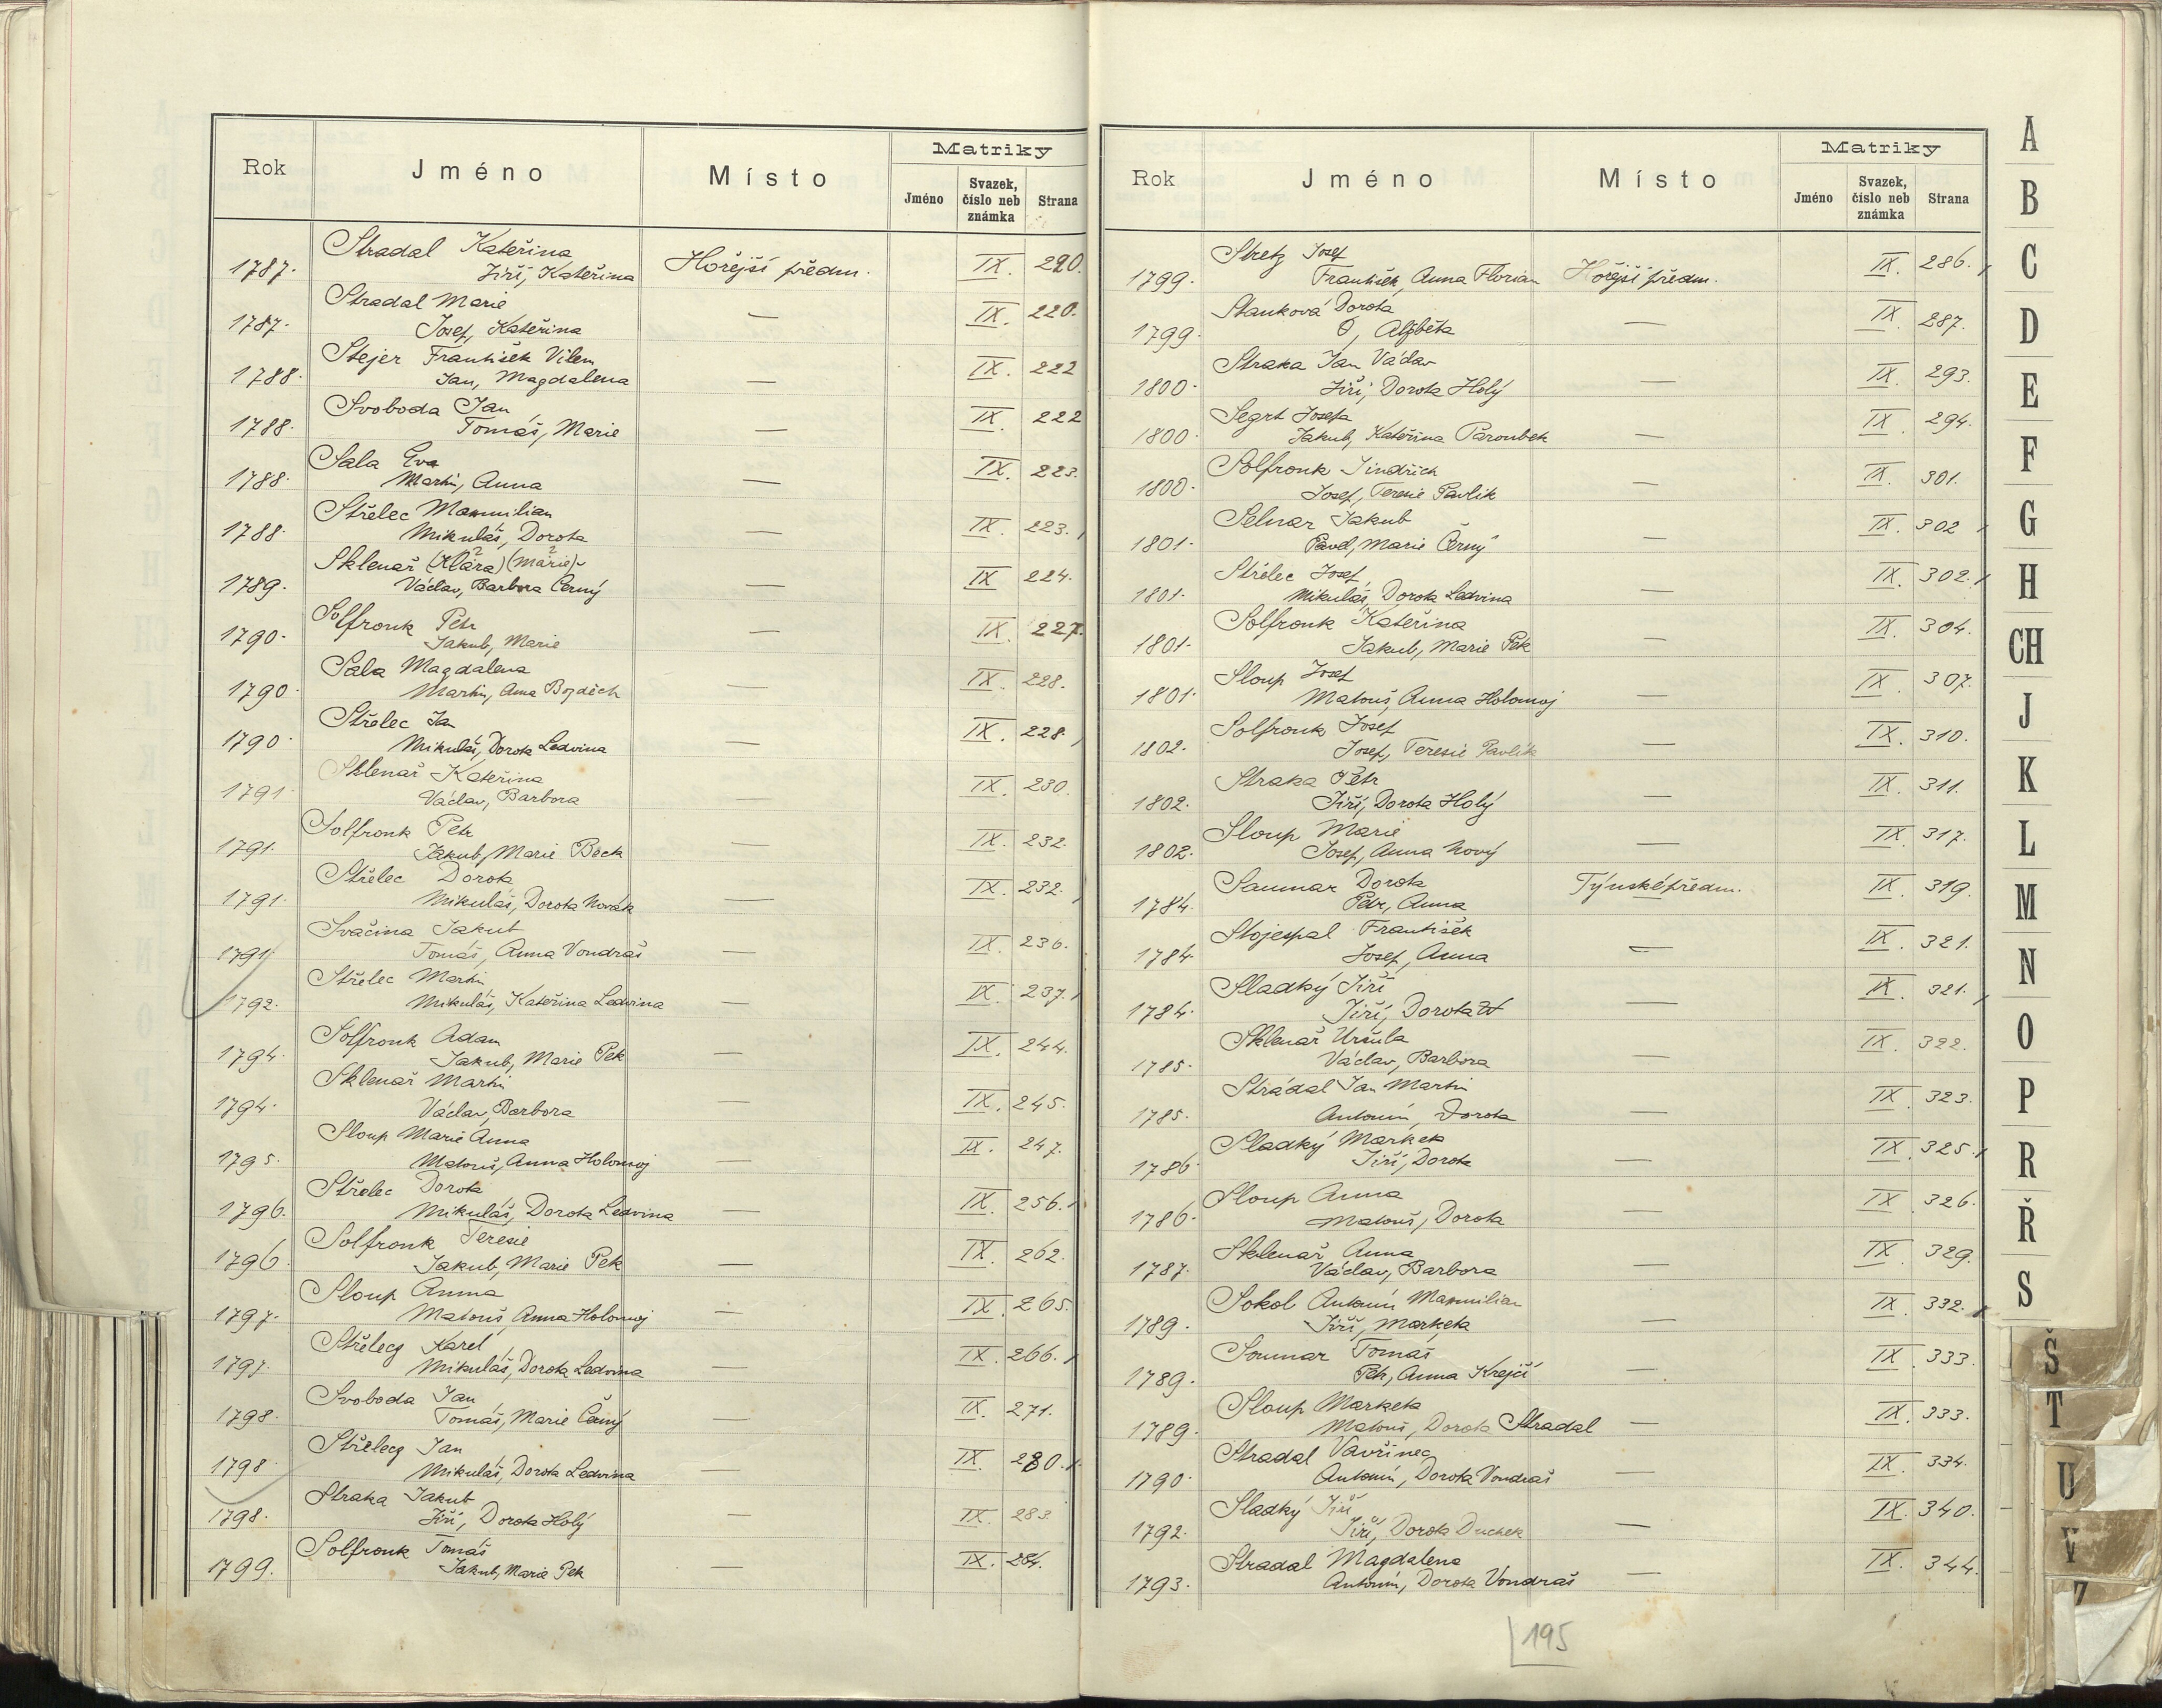 Rok Jméno Místo Matriky
Jméno Svazek, číslo neb známka Strana
Stradal Kateřina
1787. Jiří, Kateřina Hořejší předm. IX. 220.
Stradal Marie
1787. Josef, Kateřina — IX. 220.
Stejer František Vilem
1788. Jan, Magdalena — IX. 222
Svoboda Jan
1788. Tomáš, Marie — IX. 222
Sala Eva
1788. Martin, Anna — IX. 223.
Střelec Maxmilian
1788. Mikuláš, Dorota — IX. 223.
Sklenař (Klára) (Marie)
1789. Václav, Barbora Černý — IX 224.
Solfronk Petr
1790. Jakub, Marie — IX. 227.
Sala Magdalena
1790. Martin, Anna — IX. 228.
Střelec Jan
1790. Mikuláš, Dorota Ledvina — IX. 228.
Sklenař Kateřina
1791. Václav, Barbora — IX. 230.
Solfronk Petr
1791. Jakub, Marie Beck — IX. 232.
Střelec Dorota
1791. Mikuláš, Dorota Novák — IX. 232.
Svačina Jakub
1791. Tomáš, Anna Vondraš — IX. 236.
Střelec Martin
1792. Mikuláš, Kateřina Ledvina — IX. 237.
Solfronk Adam
1794. Jakub, Marie Pek — IX. 244.
Sklenař Martin
1794. Václav, Barbora — IX. 245.
Sloup Marie Anna
1795. Matouš, Anna Holomoj — IX. 247.
Střelec Dorota
1796. Mikuláš, Dorota Ledvina — IX. 256.
Solfronk Teresie
1796. Jakub, Marie Pek — IX. 262.
Sloup Anna
1797. Matouš, Anna Holomoj — IX. 265.
Střelecz Karel
1797. Mikuláš, Dorota Ledvina — IX. 266.
Svoboda Jan
1798. Tomáš, Marie Černý — IX. 271.
Střelecz Jan
1798. Mikuláš, Dorota Ledvina — IX. 280.
Straka Jakub
1798. Jiří, Dorota Holý — IX. 283.
Solfronk Tomáš
1799. Jakub, Marie Pek — IX. 284.
Rok Jméno Místo Matriky
Jméno Svazek, číslo neb známka Strana
Stretz Josef
1799. František, Anna Florian Hořejší předm. IX. 286.
Stanková Dorota
1799. O, Alžběta — IX. 287.
Straka Jan Václav
1800. Jiří, Dorota Holý — IX. 293.
Segrt Josefa
1800. Jakub, Kateřina Paroubek — IX. 294.
Solfronk Jindřich
1800. Josef, Teresie Pavlík — IX. 301.
Selnar Jakub
1801. Pavel, Marie Černý — IX. 302
Střelec Josef
1801. Mikuláš, Dorota Ledvina — IX. 302.
Solfronk Kateřina
1801. Jakub, Marie Pek — IX. 304.
Sloup Josef
1801. Matouš, Anna Holomoj — IX. 307.
Solfronk Josef
1802. Josef, Teresie Pavlík — IX. 310.
Straka Petr
1802. Jiří, Dorota Holý — IX. 311.
Sloup Marie
1802. Josef, Anna Nový — IX. 317.
Saumar Dorota
1784. Petr, Anna Týnské předm. IX. 319.
Stojespal František
1784. Josef, Anna — IX. 321.
Sladký Jiří
1784. Jiří, Dorota — IX. 321.
Sklenař Uršula
1785. Václav, Barbora — IX. 322.
Strádal Jan Martin
1785. Antonín, Dorota — IX. 323.
Sladký Marketa
1786. Jiří, Dorota — IX. 325.
Sloup Anna
1786. Matouš, Dorota — IX. 326.
Sklenař Anna
1787. Václav, Barbora — IX. 329.
Sokol Antonín Maxmilian
1789. Jiří, Marketa — IX. 332.
Soumar Tomáš
1789. Petr, Anna Krejčí — IX. 333.
Sloup Marketa
1789. Matouš, Dorota Stradal — IX. 333.
Stradal Vavřinec
1790. Antonín, Dorota Vondraš — IX. 334.
Sladký Jiří
1792. Jiří, Dorota Duchek — IX. 340.
Stradal Magdalena
1793. Antonín, Dorota Vondraš — IX. 344.
195
A
B
C
D
E
F
G
H
CH
J
K
L
M
N
O
P
R
Ř
S
Š
T
U
V